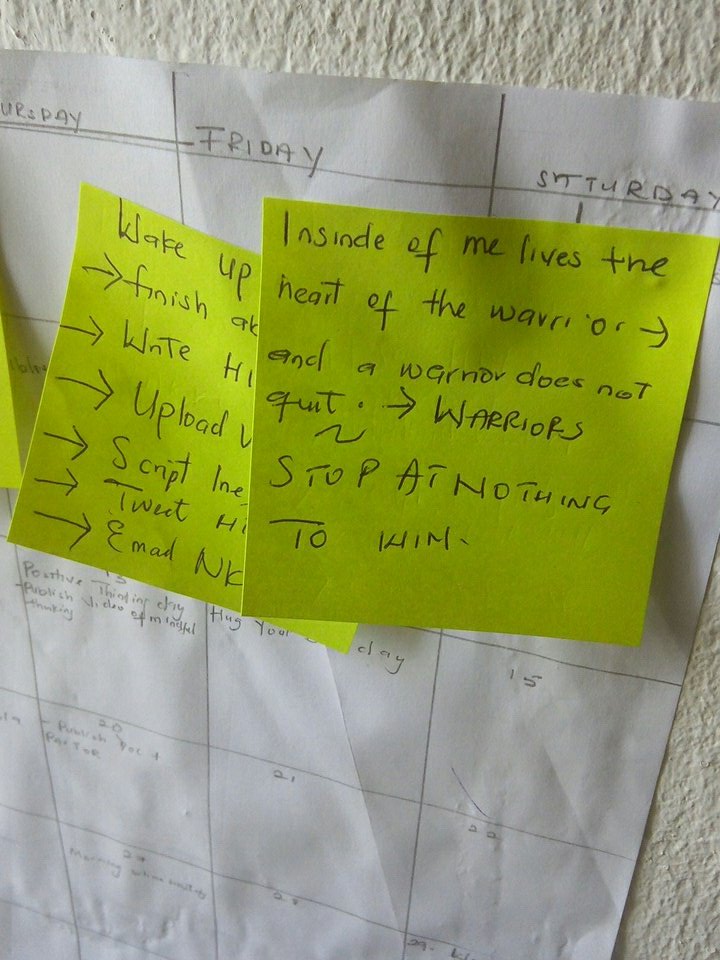 FRIDAY
SATTURDAY
1
Wake up
→ finish
→ Write
→ Upload
→ Script
→ Tweet
→ Email
Insinde of me lives the
heart of the warrior →
and a warrior does not
quit. → WARRIORS
~
STOP AT NOTHING
TO WIN.
13
Positive Thinking day
-Publish Video of mindful
thinking
Hug Your
day
15
20
- Publish
21
22
Morning
29.